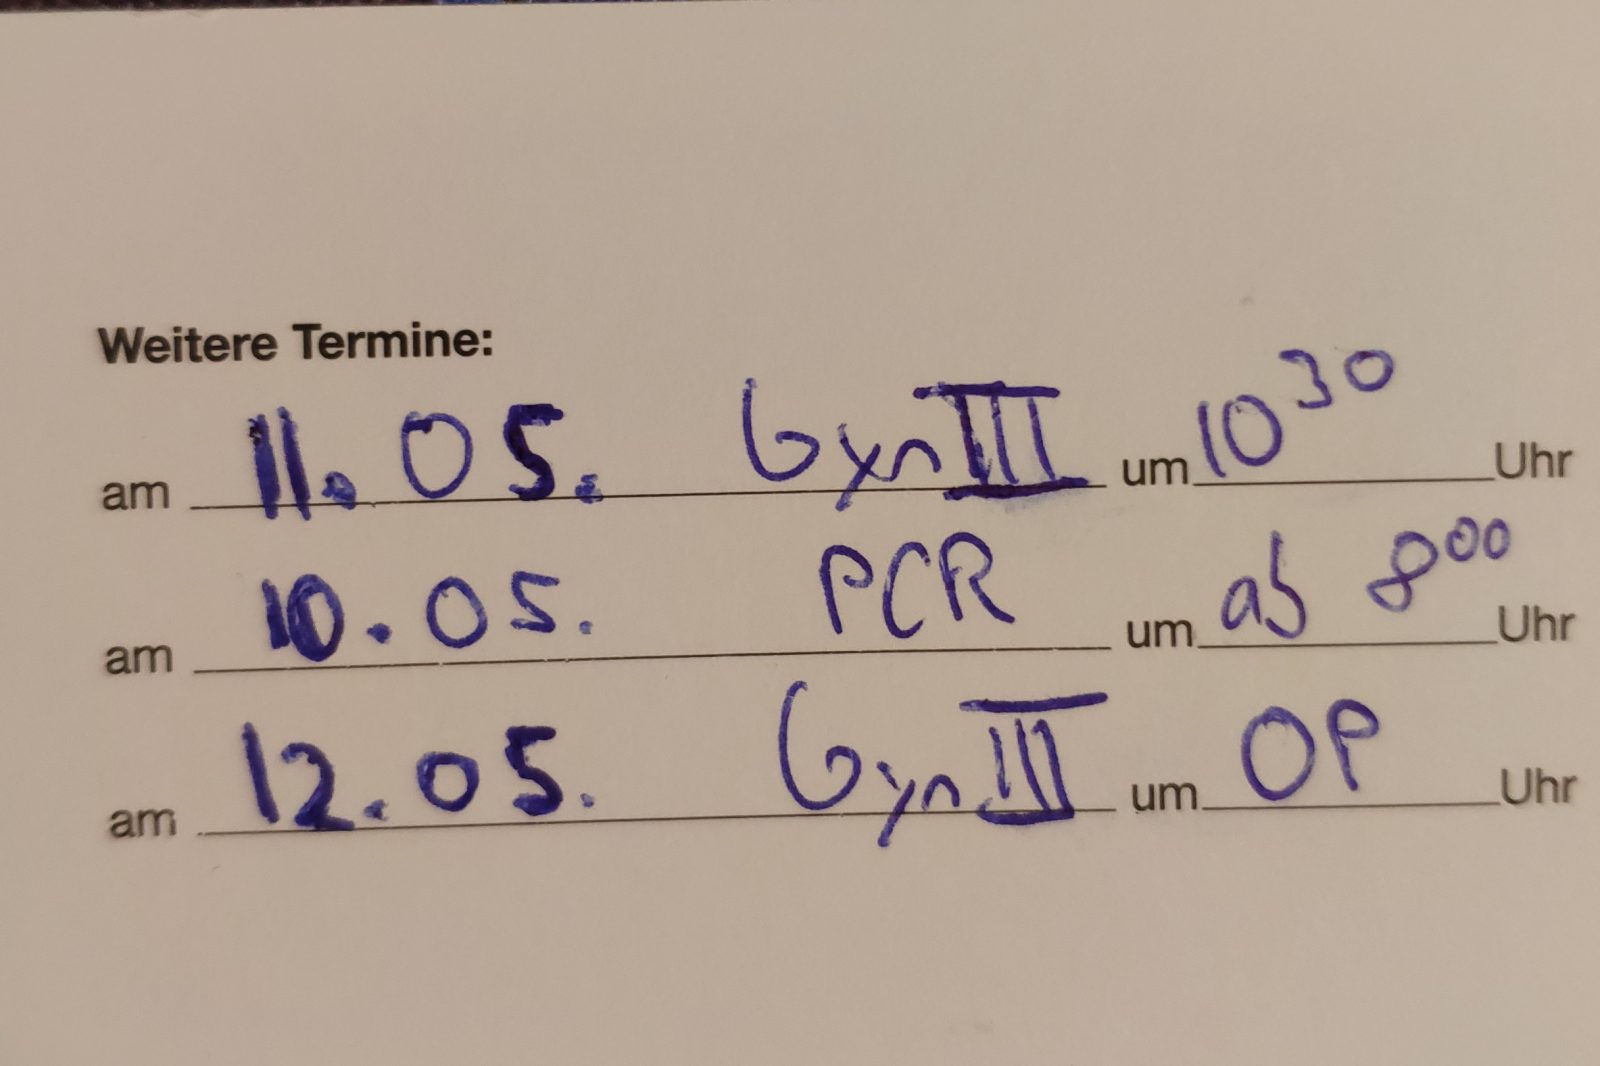 Weitere Termine:
am 11.05. Gyn III um 10³⁰ Uhr
am 10.05. PCR um ab 8⁰⁰ Uhr
am 12.05. Gyn III um OP Uhr